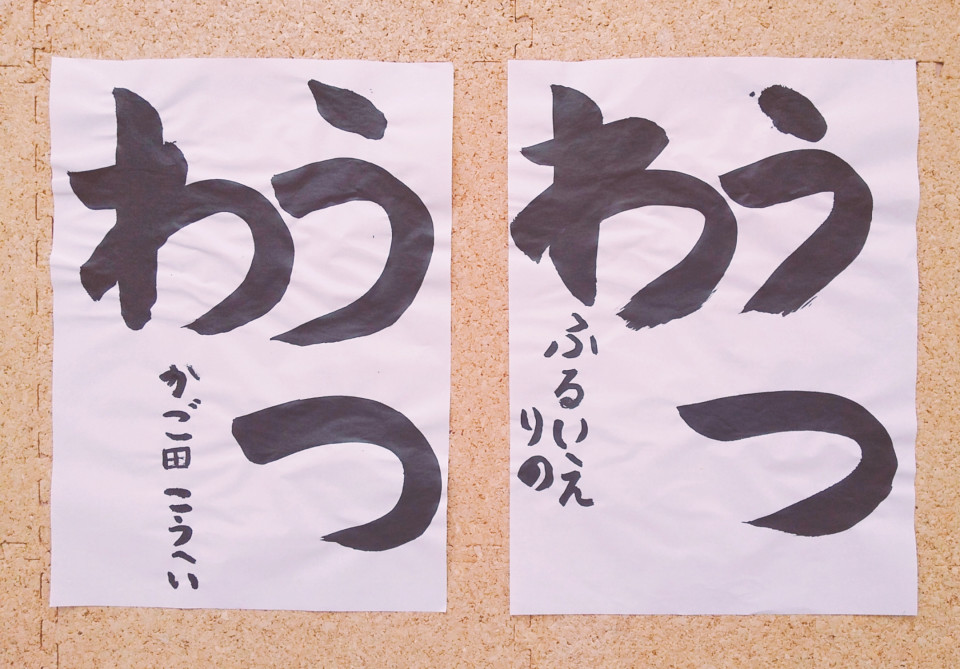 うつ
わ
かご田 こうへい
うつ
わ
ふるいえ
りの